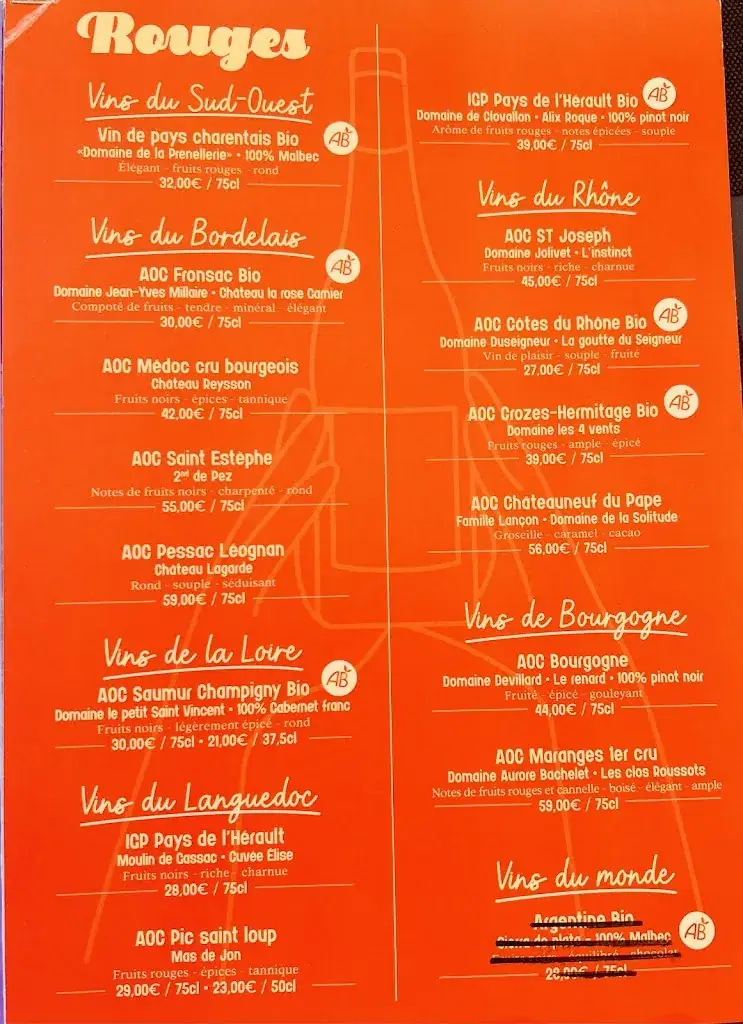 Rouges
Vins du Sud-Ouest
Vin de pays charentais Bio
AB
«Domaine de la Prenellerie» • 100% Malbec
Élégant - fruits rouges - rond
32,00€ / 75cl
Vins du Bordelais
AOC Fronsac Bio
AB
Domaine Jean-Yves Millaire • Château la rose Garnier
Compoté de fruits - tendre - minéral - élégant
30,00€ / 75cl
AOC Médoc cru bourgeois
Château Reysson
Fruits noirs - épices - tannique
42,00€ / 75cl
AOC Saint Estèphe
2nd de Pez
Notes de fruits noirs - charpenté - rond
55,00€ / 75cl
AOC Pessac Léognan
Château Lagarde
Rond - souple - séduisant
59,00€ / 75cl
Vins de la Loire
AOC Saumur Champigny Bio
AB
Domaine le petit Saint Vincent • 100% Cabernet franc
Fruits noirs - légèrement épicé - rond
30,00€ / 75cl • 21,00€ / 37,5cl
Vins du Languedoc
IGP Pays de l'Hérault
Moulin de Gassac • Cuvée Élise
Fruits noirs - riche - charnue
28,00€ / 75cl
AOC Pic saint loup
Mas de Jon
Fruits rouges - épices - tannique
29,00€ / 75cl • 23,00€ / 50cl
IGP Pays de l'Hérault Bio
AB
Domaine de Clovallon • Alix Roque • 100% pinot noir
Arôme de fruits rouges - notes épicées - souple
39,00€ / 75cl
Vins du Rhône
AOC ST Joseph
Domaine Jolivet • L'instinct
Fruits noirs - riche - charnue
45,00€ / 75cl
AOC Côtes du Rhône Bio
AB
Domaine Duseigneur • La goutte du Seigneur
Vin de plaisir - souple - fruité
27,00€ / 75cl
AOC Crozes-Hermitage Bio
AB
Domaine les 4 vents
Fruits rouges - ample - épicé
39,00€ / 75cl
AOC Châteauneuf du Pape
Famille Lançon • Domaine de la Solitude
Groseille - caramel - cacao
56,00€ / 75cl
Vins de Bourgogne
AOC Bourgogne
Domaine Devillard • Le renard • 100% pinot noir
Fruité - épicé - gouleyant
44,00€ / 75cl
AOC Maranges 1er cru
Domaine Aurore Bachelet • Les clos Roussots
Notes de fruits rouges et cannelle - boisé - élégant - ample
59,00€ / 75cl
Vins du monde
Argentine Bio
AB
de plata • 100% Malbec
équilibré - chocolat
/ 75cl